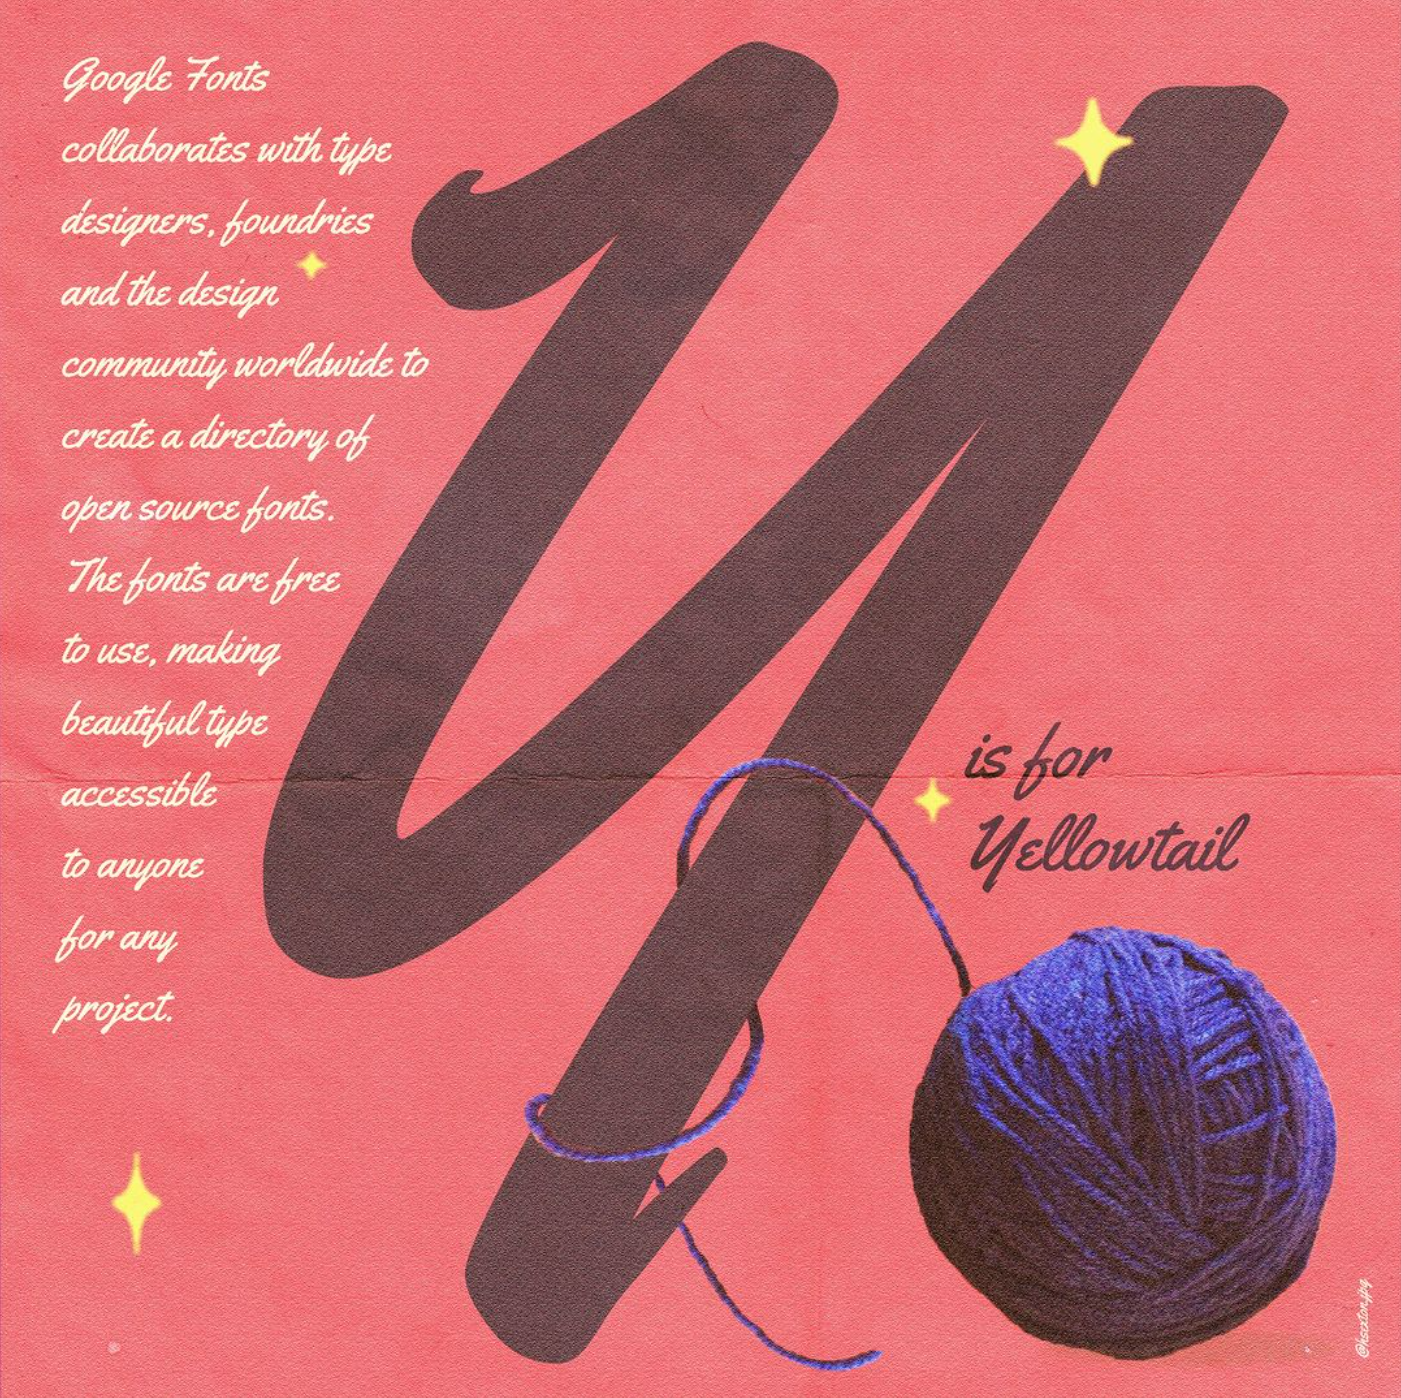 Google Fonts
collaborates with type
designers, foundries
and the design
community worldwide to
create a directory of
open source fonts.
The fonts are free
to use, making
beautiful type
accessible
to anyone
for any
project.
Y
is for
Yellowtail
@hsexton.jpg